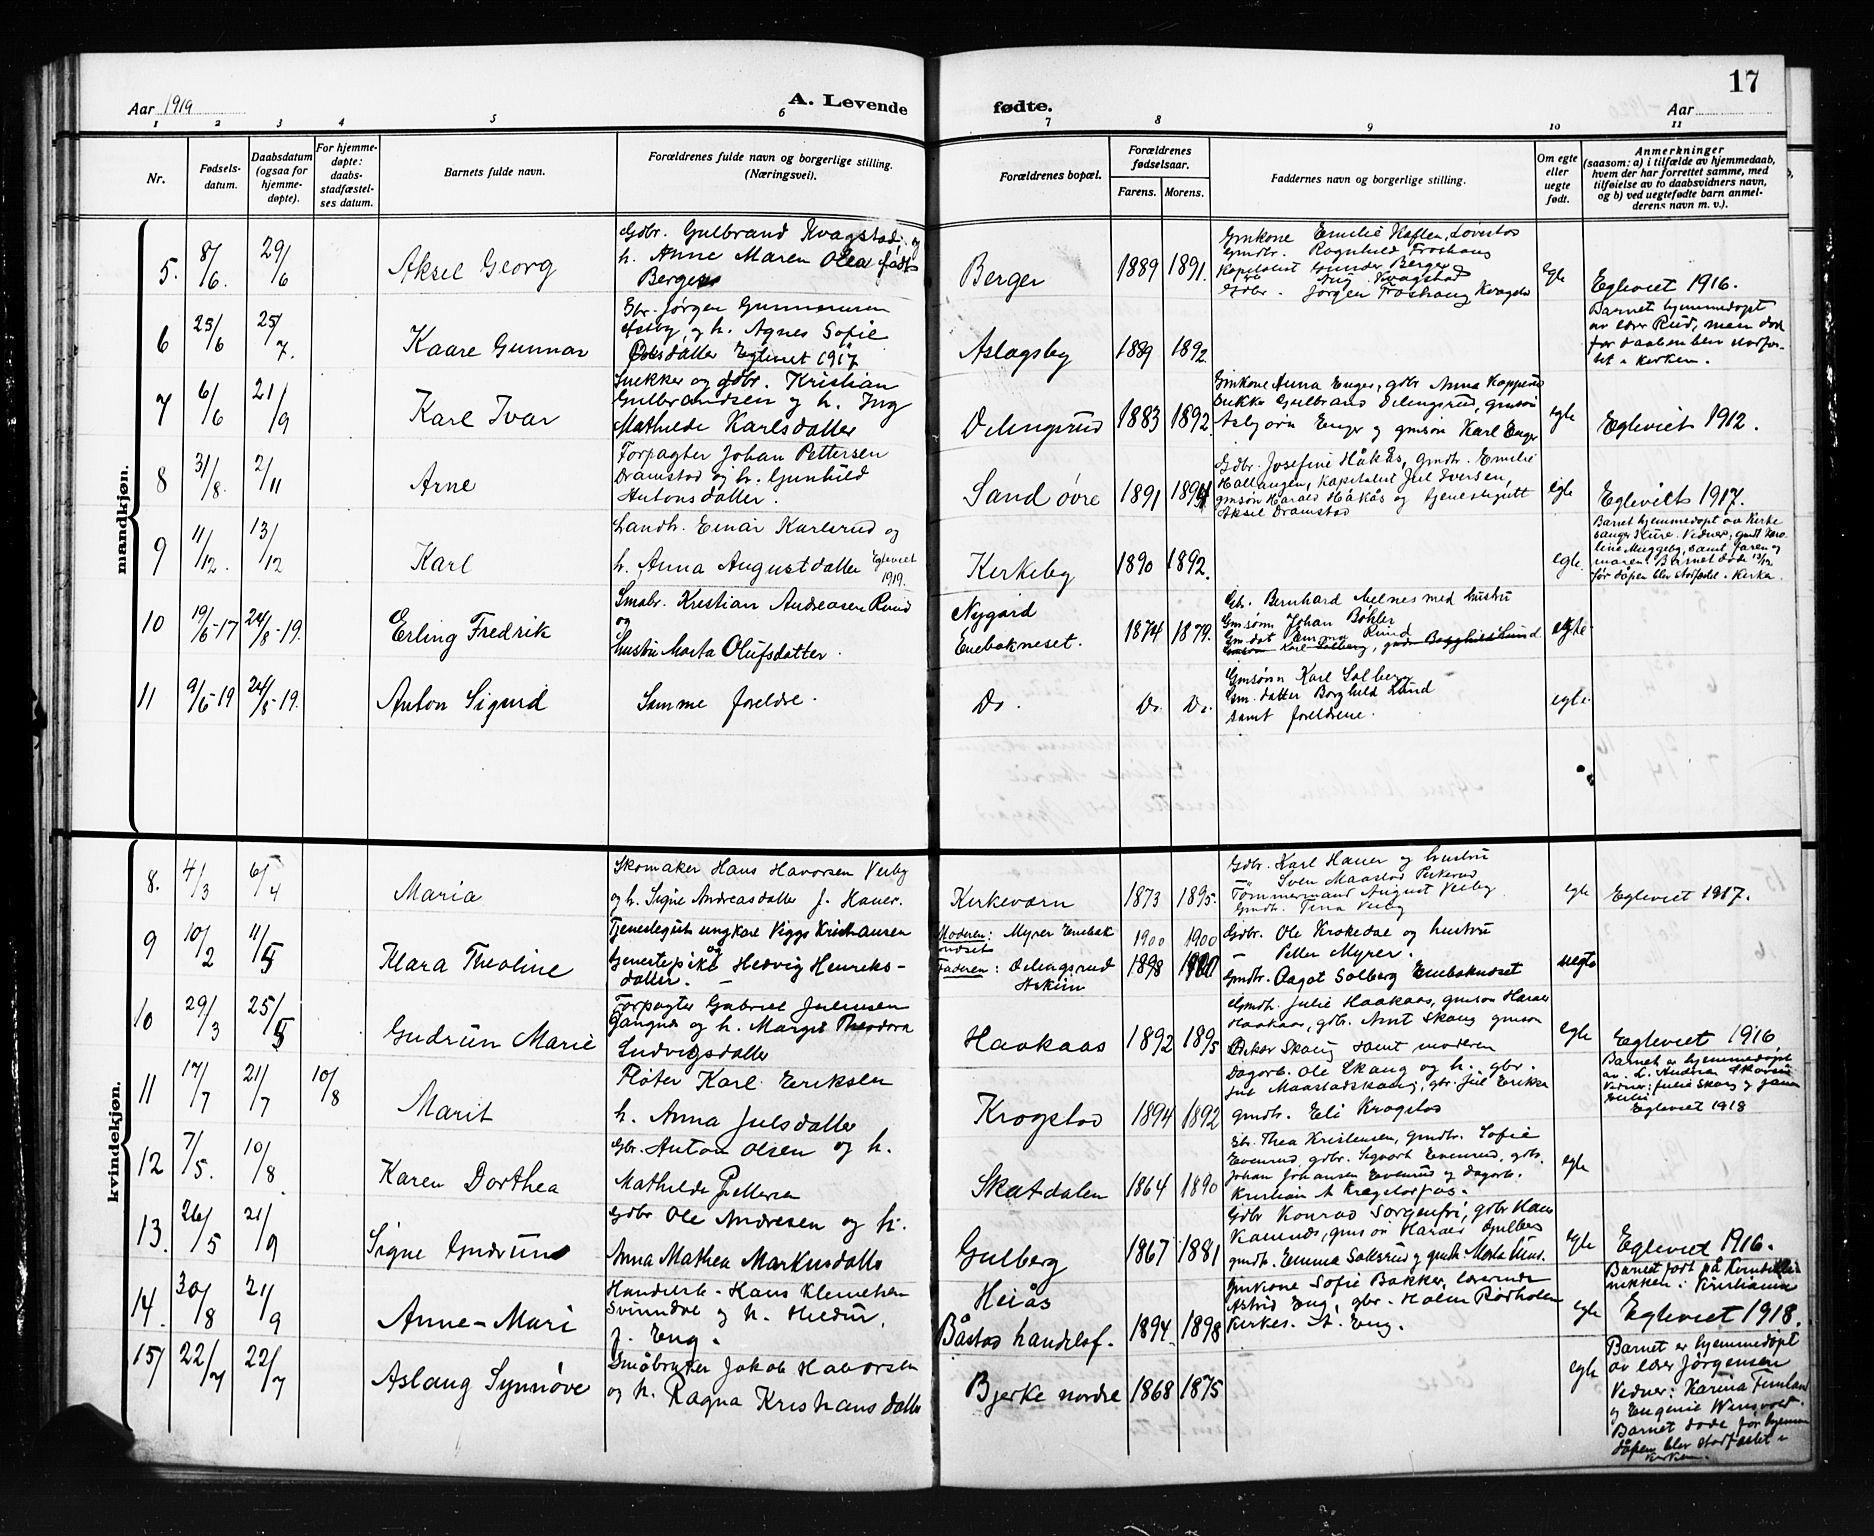 17
Aar 1919
A. Levende
fødte.
Aar
1 2 3 4 5 6 7 8 9 10 11
Nr.
Fødsels-
datum.
Daabsdatum
(ogsaa for
hjemme-
døpte).
For hjemme-
døpte:
daabs-
stadfæstel-
ses datum.
Barnets fulde navn.
Forældrenes fulde navn og borgerlige stilling.
(Næringsvei).
Forældrenes bopæl.
Forældrenes
fødselsaar.
Farens. Morens.
Faddernes navn og borgerlige stilling.
Om egte
eller
uegte
født.
Anmerkninger
(saasom: a) i tilfælde av hjemmedaab,
hvem der har forrettet samme, med
tilføielse av to daabsvidners navn,
og b) ved uegtefødte barn anmel-
derens navn m. v.).
mandkjøn.
5. 8/6. 29/6 Aksel Georg
Gdbr. Gulbrand Kvagstad, og
h. Anne Maren Olea født
Berger
Berger 1889 1891.
Gmkone Emilie Haften,
Gmdtr. Ragnhild Froshaug
Kapitalist Gunder Berger
Aug. Kvagstad
Gdbr. Jørgen Froshaug Kvagstad
egte Egteviet 1916.
6 25/6 25/7. Kaare Gunnar
Gbr. Jørgen Gunnarsen
h. Agnes Sofie
Olsdatter Egteviet 1917
Aslagsby 1889 1892
Barnet hjemmedøpt
av Rud, men død
før daaben blev stadfæs-
tet i kirken.
7 6/6 21/9 Karl Ivar
Snekker og gdbr. Kristian
Gulbrandsen og h. Ing
Mathilde Karlsdatter
Delingsrud 1883 1892.
Gmkone Anna Enger, gdbr Anna Kopperud
Gulbrand Delingsrud, gmsøn
Asbjørn Enger og gmsøn Karl Enger
egte Egteviet 1912.
8 31/8. 2/11 Arne
Forpagter Johan Pettersen
Dramstad og h. Gunhild
Antonsdatter.
Sand øvre 1891 1894
Gdbr. Josefine Håkås, gmdtr. Emilie
Hallangen, Kapitalist Jul Iversen,
gmsøn Harald Håkås og tjenestegutt
Aksel Dramstad
egte Egteviet 1917.
9 11/12. 13/12 Karl
Landh. Einar Karlsrud og
h. Anna Augustdatter Egteviet
1919.
Kirkeby 1890 1892.
egte.
Barnet hjemmedøpt av Kirke
sanger Kure. Vidner, gmdt Karo
line Muggeby, samt faren og
moren. Barnet døde 13/12
før dåpen blev stadfæstet i Kirka.
10 19/6-17 24/8-19. Erling Fredrik
Småbr. Kristian Andreasen Rund
og
hustru Marta Olufsdatter.
Nygård
Enebakneset. 1874 1879.
Gb. Bernhard Melnes med hustru
Gmsønn Johan Bøhler
Gm.dat Emma Rund
Gmsønn Karl Solberg, gmdtr Borghild Lund
egte
11 9/6-19 24/8-19. Anton Sigurd
Samme foreldre.
Do. Do. Do.
Gmsønn Karl Solberg
Gm.datter Borghild Lund
samt foreldrene.
egte.
kvindekjøn.
8. 4/3 6/4 Maria
Skomaker Hans Havorsen Veiby
og h. Signe Andreasdatter f. Hauer.
Kirkevarn 1873 1895.
Gdbr. Karl Hauer og hustru
Sven Maastad
Tømmermand August Veiby
Gmdtr. Tina Veiby
egte Egteviet 1917.
9 10/2 11/5 Klara Theoline
Tjenestegut ungkar Viggo Kristiansen
og
tjenestepike Hedvig Henriks-
datter.
Moderen: Myrer Enebak
næset 1900 1900
Faderen: Delingsrud 1898 1900
Askim
Gdbr. Ole Krokedal og hustru
Petter Myrer.
Gmdtr. Aagot Solberg Enebaknæset
uegte
10 29/3 25/5 Gudrun Marie
Forpagter Gabriel Juliussen
Gangnes og h. Margit Theodora
Ludvigsdatter
Haakaas 1892 1895
Gmdtr. Julie Haakaas, gmsøn Harald
Haakaas, gdbr. Arnt Skaug gmsøn
Oskar Skaug samt moderen
egte Egteviet 1916
11 17/7 21/7 10/8 Marit
Fløter Karl Eriksen
h. Anna Julsdatter
Krogstad 1894 1892
Dagarb. Ole Skaug og h. gbr.
Jul Maastadskaug, gbr. Jul Eriksen
gmdtr. Eli Krogstad
Barnet er hjemmedøpt
av L. Andrea
Vidner: Julie Skaug og
Egteviet 1918
12 7/5. 10/8. Karen Dorthea
Gbr. Anton Olsen og h.
Mathilde Pettersen
Skatdalen 1864 1890
Gbr. Thea Kristensen, gmdtr. Sofie
Evenrud gdbr. Sigvart Evenrud, gdb.
Johan Johansen Evenrud og dagarb.
Kristian A.
egte
13. 26/5 21/9 Signe Gudrun
Gdbr Ole Andresen og h.
Anna Mathea Markusdatter
Gulberg 1867 1881
Gdbr Konrad Sorgenfri, gdbr Hans
gmsøn Harald Gulberg
gmdt. Emma og gmdt. Marta
egte Egteviet 1916.
14. 30/8 21/9 Anne-Mari
Handelsb. Hans Klemetsen
Svinndal og h. Hildur,
f. Eng.
Heiås
Båstad handelsf. 1894 1898
Gmkone Sofie Bakker, lærerinde
Astrid Eng, gbr. Holm Rødholen
Kirkes. A. Eng.
egte
Barnet født på Kvindekli
nikken i Kristiania
Egteviet 1918.
15 22/7 22/7 Aslaug Synnøve
Småbruker Jakob Halvorsen
og h. Ragna Kristiansdatter
Bjerke nordre 1868 1875
egte
Barnet er hjemmedøpt
av lærer Jørgensen
Vidner: Karina Finland
og Eugenie
Barnet døde før hjemme
dåpen blev stadfæstet i
kirken.